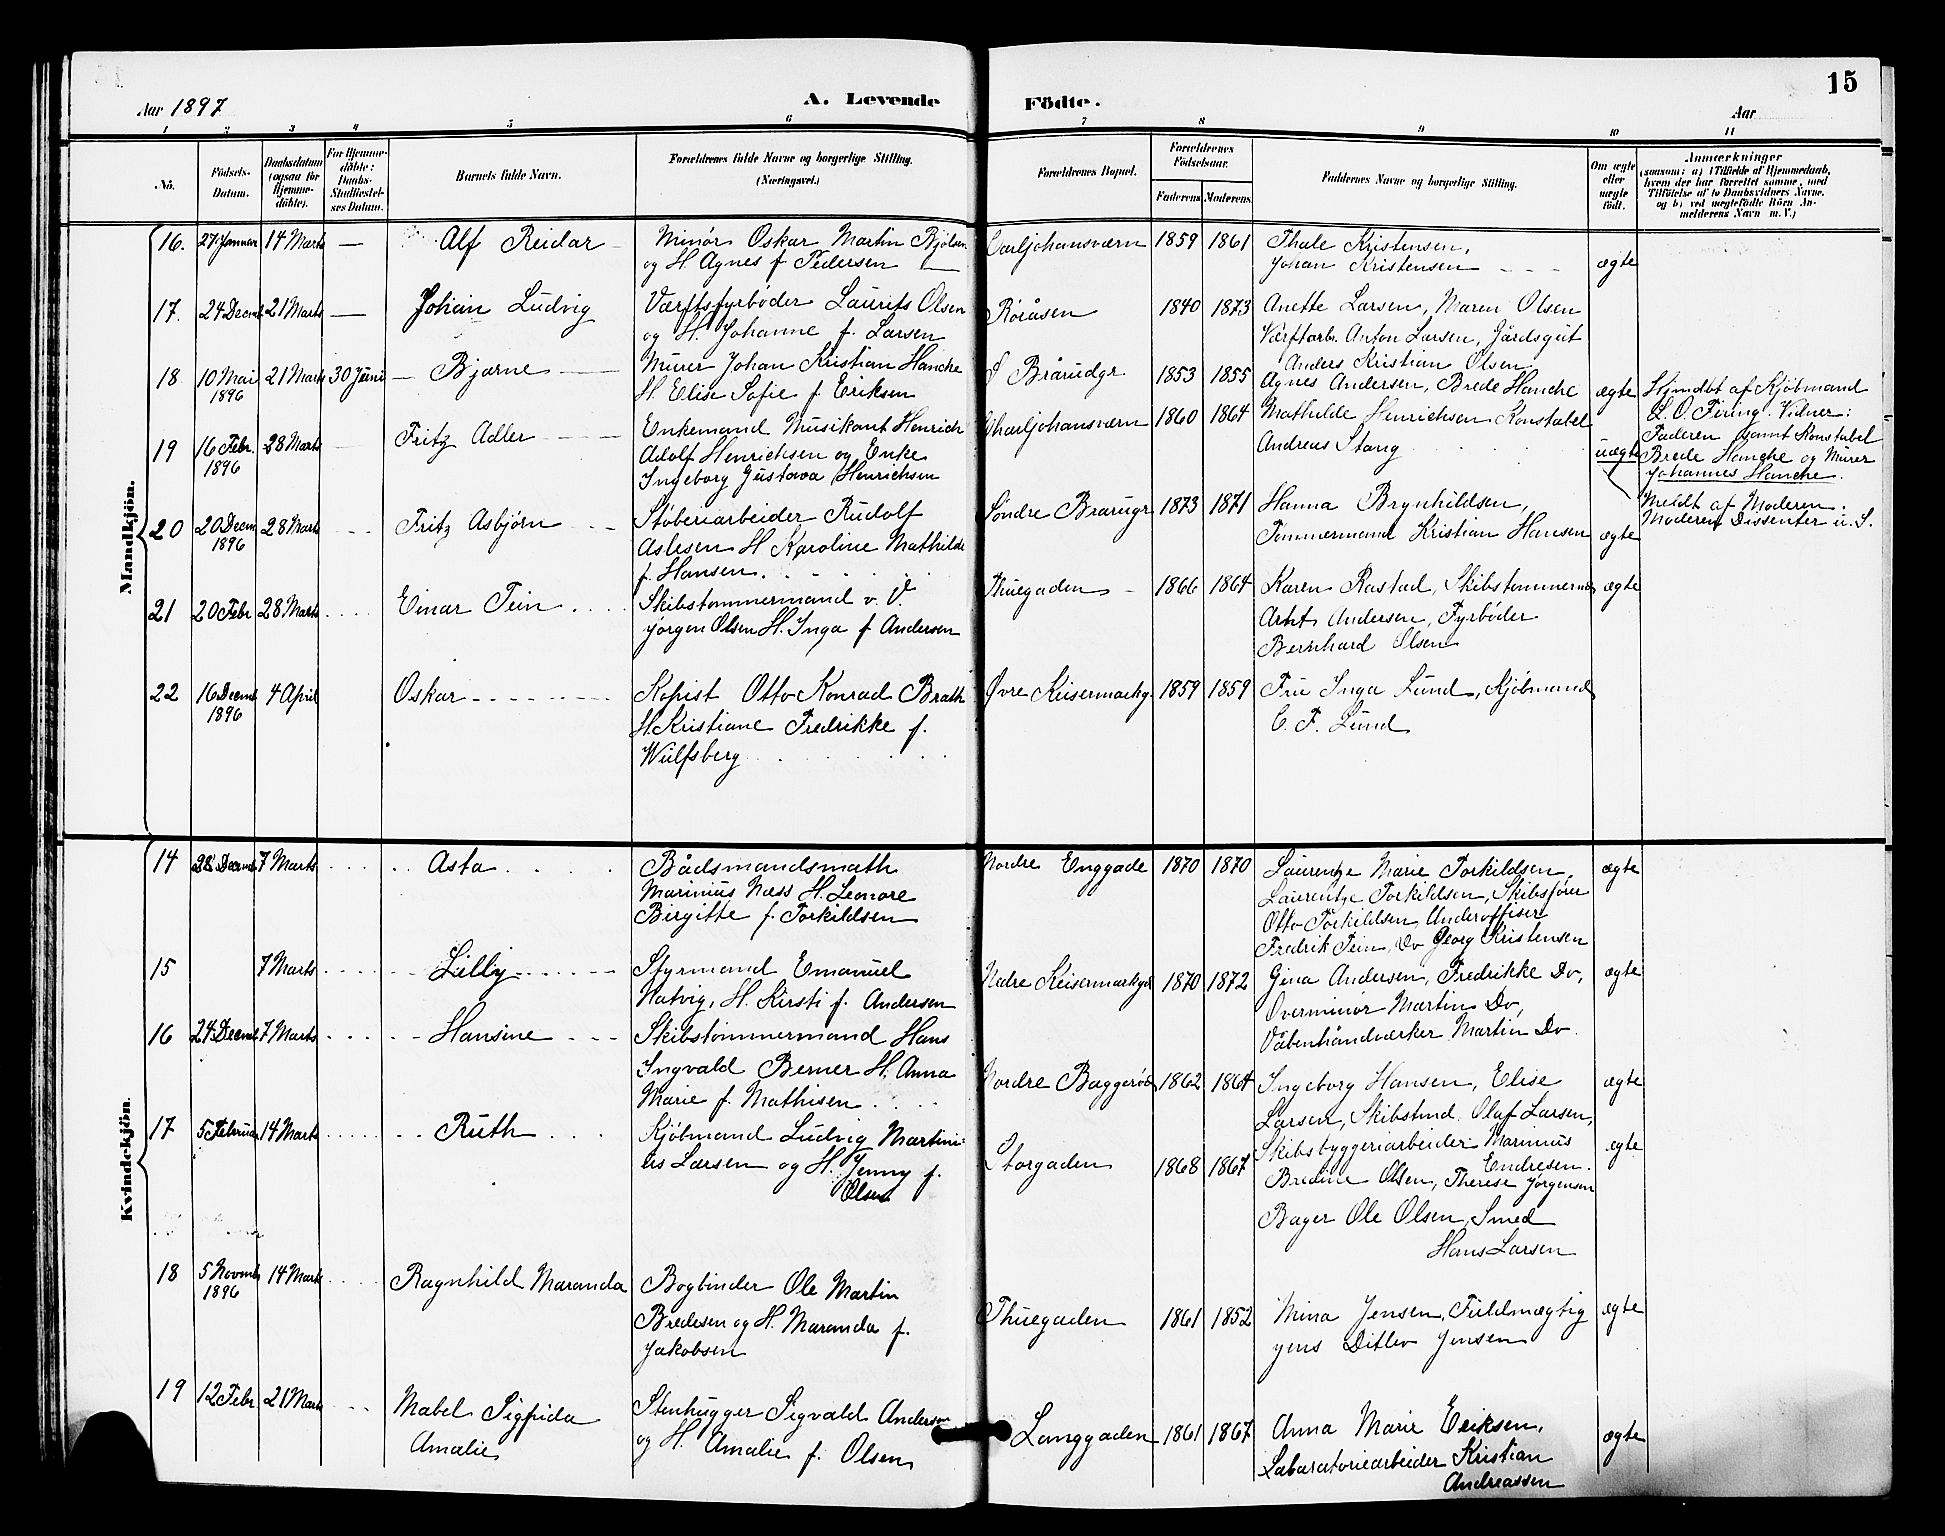 15
Aar 1897
A. Levende
Födte.
Aar
1 2 3 4 5 6 7 8 9 10 11
No.
Födsels-Datum.
Daabsdatum (ogsaa for Hjemmedöbte).
For Hjemmedöbte: Daabs-Stadfæstelses Datum.
Barnets fulde Navn.
Forældrenes fulde Navne og borgerlige Stilling. (Næringsvei.)
Forældrenes Bopæl.
Forældrenes Födselsaar.
Faderens
Moderens
Faddernes Navne og borgerlige Stilling.
Om ægte eller uægte födt.
Anmærkninger
(saasom: a) i Tilfælde af Hjemmedaab, hvem der har forrettet samme, med Tilföielse af to Daabsvidners Navne. og b) ved uægtefödte Börn Anmelderens Navn m. V.)
Mandkjön.
16. 27 Januar 14 Marts — Alf Reidar
Minör Oskar Martin Bjölsen
og H. Agnes f Pedersen
Carljohansværn 1859 1861
Thale Kristensen,
Johan Kristensen
ægte
17. 24 Decmb 21 Marts — Johan Ludvig
Værftsfyrböder Laurits Olsen
og H. Johanne f. Larsen
Röråsen 1840 1873
Anette Larsen, Maren Olsen
Værftarb. Anton Larsen, Gårdsgut
Anders Kristian Olsen
18 10 Mai 1896 21 Marts 30 Juni Bjarne
Murer Johan Kristian Hanche
H. Elise Sofie f Eriksen
Ö Brårudgr 1853 1855
Agnes Andersen, Brede Hanche
ægte
Hjmdbt af Kjöbmand
L. O. Firing. Vidner:
Faderen samt Konstabel
Brede Hanche og Murer
Johannes Hanche.
19 16 Febr 1896 28 Marts Fritz Adler
Enkemand Musikant Henrich
Adolf Henrichsen og Enke
Ingeborg Gustava Henrichsen
Charljohansværn 1860 1864
Mathilde Henrichsen Konstabel
Andreas Stang
uægte
Meldt af Moderen.
Moderen Dissenter u. S.
20 20 Decm 1896 28 Marts Fritz Asbjörn
Stöberiarbeider Rudolf
Aslesen H Karoline Mathilde
f. Hansen.
Söndre Brarugr 1873 1871
Hanna Brynhildsen,
Tömmermand Kristian Hansen
ægte
21 20 Febr 28 Marts Einar Tein
Skibstömmermand v. V.
Jörgen Olsen H. Inga f Andersen
Thuegaden 1866 1864
Karen Rastad, Skibstömmermd
Arnt Andersen, Fyrböder
Bernhard Olsen
ægte
22 16 Decmb 1896 4 April Oskar
Kopist Otto Konrad Brath
H. Kristiane Fredrikke f.
Wulfsberg
Övre Keisermarkg. 1859 1859
Fru Inga Lund, Kjöbmand
C. F. Lund
Kvindekjön.
14 28 Decmb 7 Marts Asta
Bådsmandsmath
Marinius Næss H. Leonore
Birgitte f. Torkildsen
Nordre Enggade 1870 1870
Laurentze Marie Torkildsen,
Laurentze Torkildsen, Skibsförer
Otto Torkildsen, Underoffiser
Fredrik Tein, Do Georg Kristensen
ægte
15 7 Marts Lilly
Styrmand Emanuel
Natvig, H. Kirsti f. Andersen
Nedre Keisermarkgd 1870 1872
Gina Andersen, Fredrikke Do,
Överminör Martin Do,
Våbenhåndværker Martin Do.
ægte
16 24 Decmb 7 Marts Hansine
Skibstömmermand Hans
Ingvald Berner H. Anna
Marie f. Mathisen
Nordre Baggeröd 1862 1864
Ingeborg Hansen, Elise
Larsen, Skibstmd. Olaf Larsen,
Skibsbyggeriarbeider Marinius
Endresen.
ægte
17 5 Februar 14 Marts Ruth
Kjöbmand Ludvig Martini-
us Larsen og H. Jenny f.
Olsen
Storgaden 1868 1867
Bredine Olsen, Therese Jörgensen
Bager Ole Olsen, Smed
Hans Larsen
ægte
18 5 Novmb 1896 14 Marts Ragnhild Maranda
Bogbinder Ole Martin
Bredesen og H. Maranda f.
Jakobsen
Thuegaden 1861 1852
Mina Jensen, Fuldmægtig
Jens Ditlev Jensen
ægte
19 12 Febr 21 Marts Mabel Sigfrida
Amalie
Stenhugger Sigvald Andersen
og H. Amalie f. Olsen
Langgaden 1861 1867
Anna Marie Eriksen,
Labaratoriearbeider Kristian
Andreassen
ægte